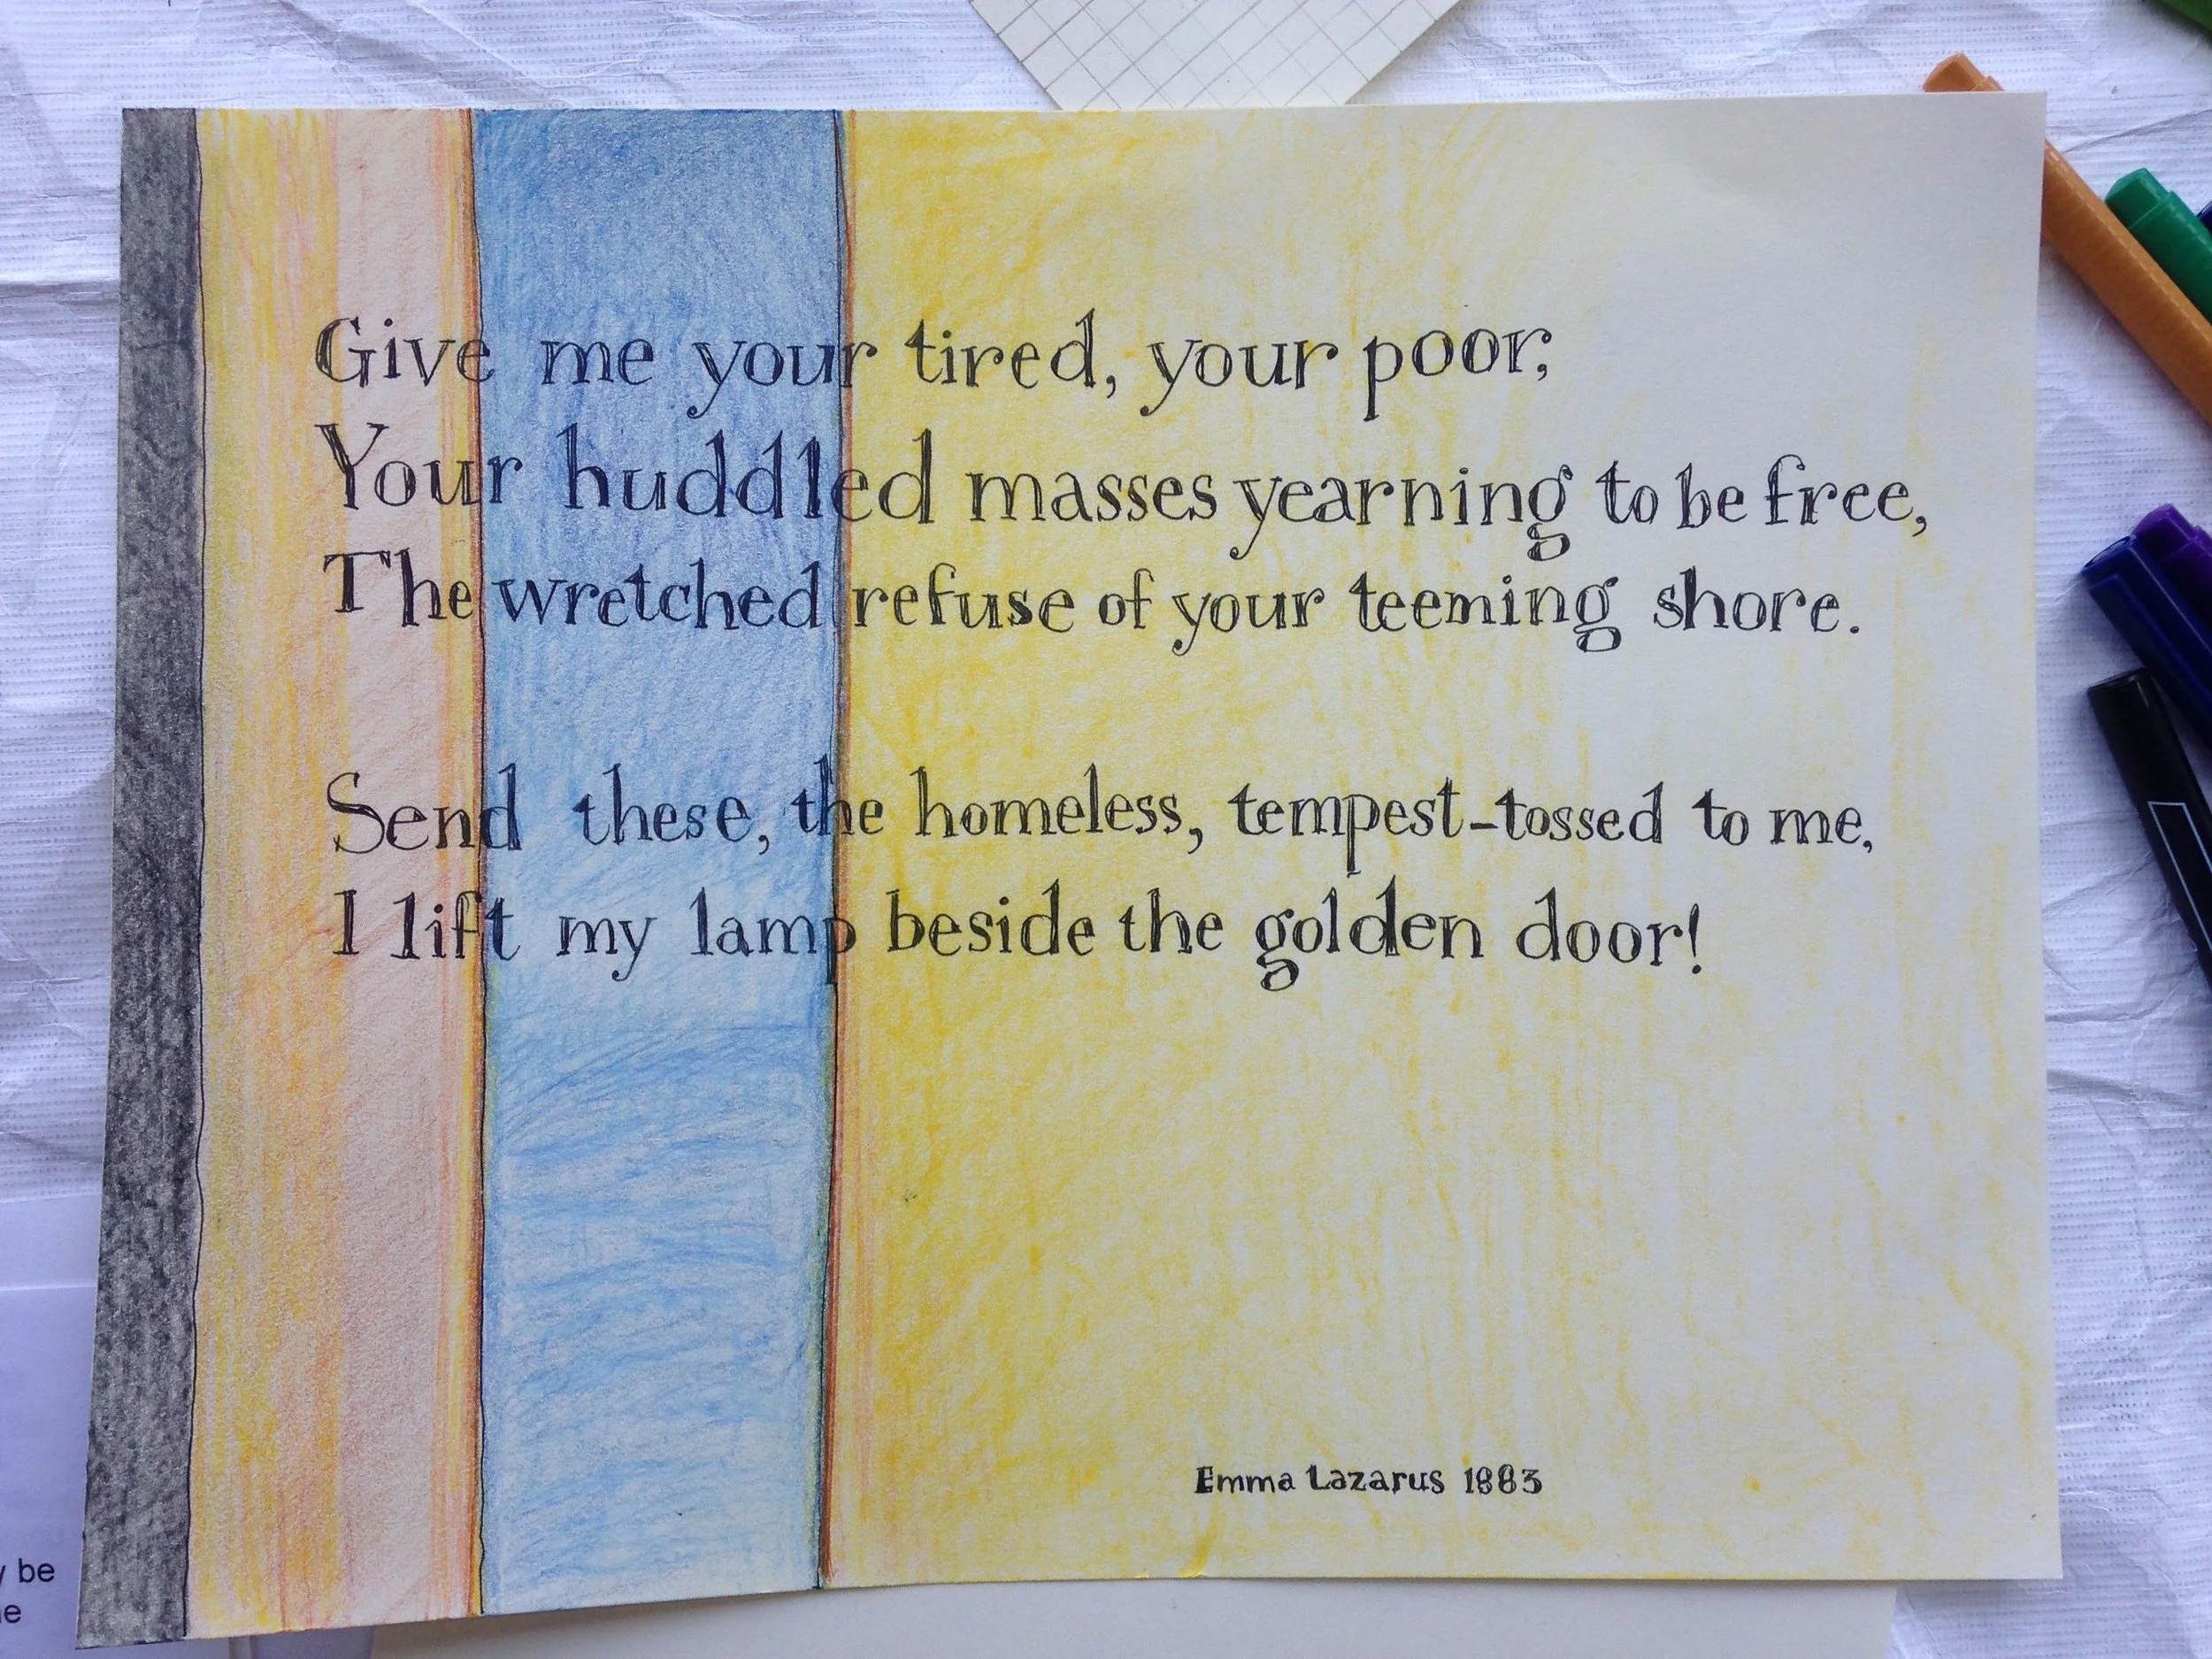 Give me your tired, your poor,
Your huddled masses yearning to be free,
The wretched refuse of your teeming shore.
Send these, the homeless, tempest-tossed to me,
I lift my lamp beside the golden door!
Emma Lazarus 1883
be